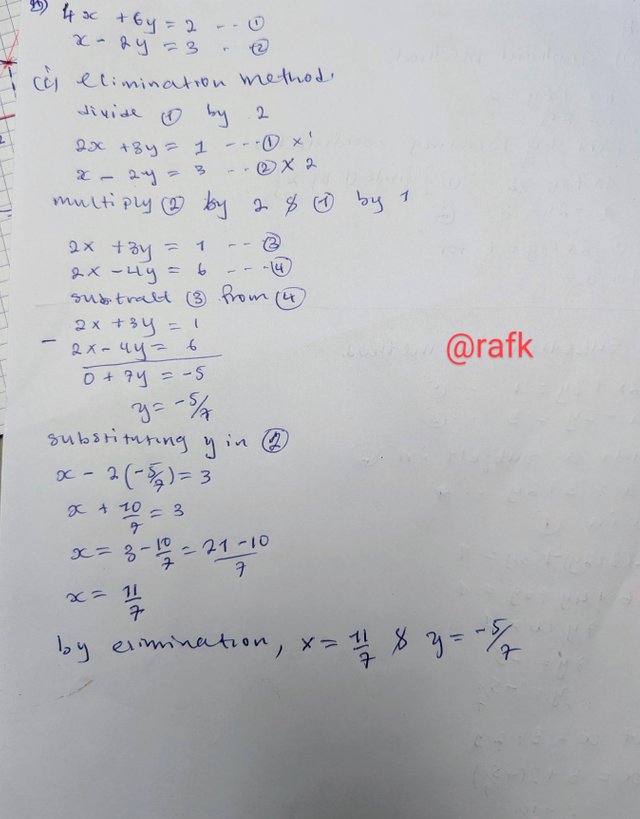 4x + 6y = 2 -- ①
x - 2y = 3 - ②
(i) elimination method.
divide ① by 2
2x + 3y = 1 --- ① x 1
x - 2y = 3 -- ② X 2
multiply ② by 2 & ① by 1
2x + 3y = 1 -- ③
2x - 4y = 6 --- ④
subtract ③ from ④
2x + 3y = 1
- 2x - 4y = 6
0 + 7y = -5
y = -5/7
substituting y in ②
x - 2(-5/7) = 3
x + 10/7 = 3
x = 3 - 10/7 = 21 - 10/7
x = 11/7
by elimination, x = 11/7 & y = -5/7
@rafk